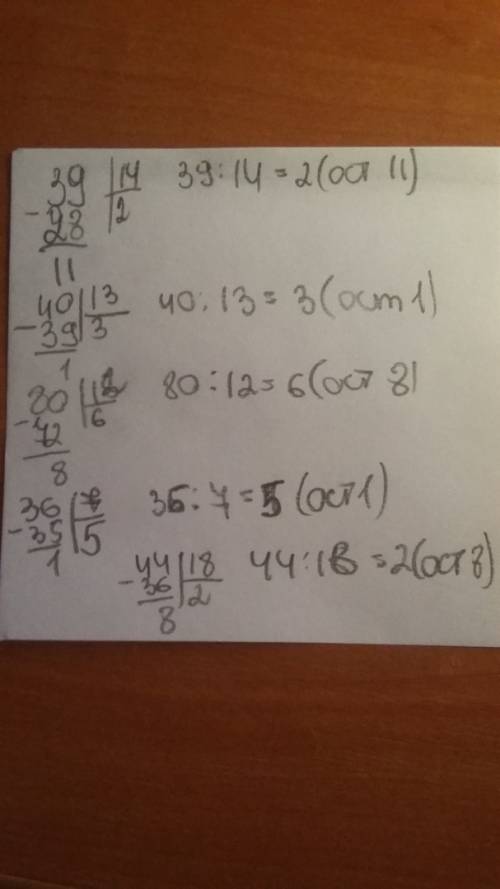 39 |14 39:14=2(ост 11)
-28 |2
11
40 |13 40:13=3(ост 1)
-39 |3
1
80 |12 80:12=6(ост 8)
-72 |6
8
36 |7 36:7=5(ост 1)
-35 |5
1
44 |18 44:18=2(ост 8)
-36 |2
8